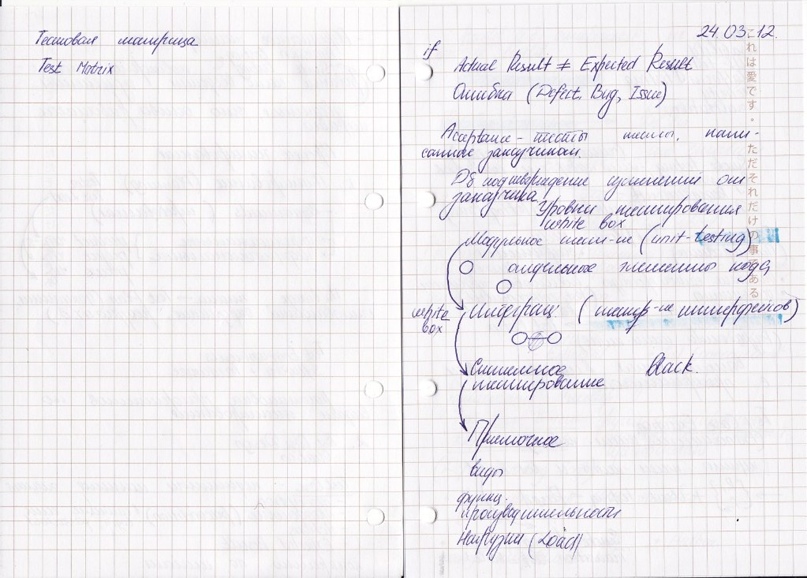 Тестовая матрица
Test Matrix
24.03.12.
if
Actual Result ≠ Expected Result
Ошибка (Defect, Bug, Issue)
Acceptance - тесты напи-
санное заказчиком.
подтверждение от
заказчика
Уровни тестирования
white box
Модульное тест-ие (unit-testing)
отдельные элементы кода
white
box
Интеграц. (тестир-ие интерфейсов)
Системное black.
тестирование
Приемочное
виды
функц.
производительности
Нагрузки (Load)
これは愛です・ただそれだけの事である